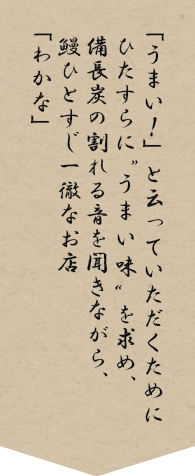 「うまい！」と云っていただくために
ひたすらに〝うまい味〟を求め、
備長炭の割れる音を聞きながら、
鰻ひとすじ一徹なお店
「わかな」